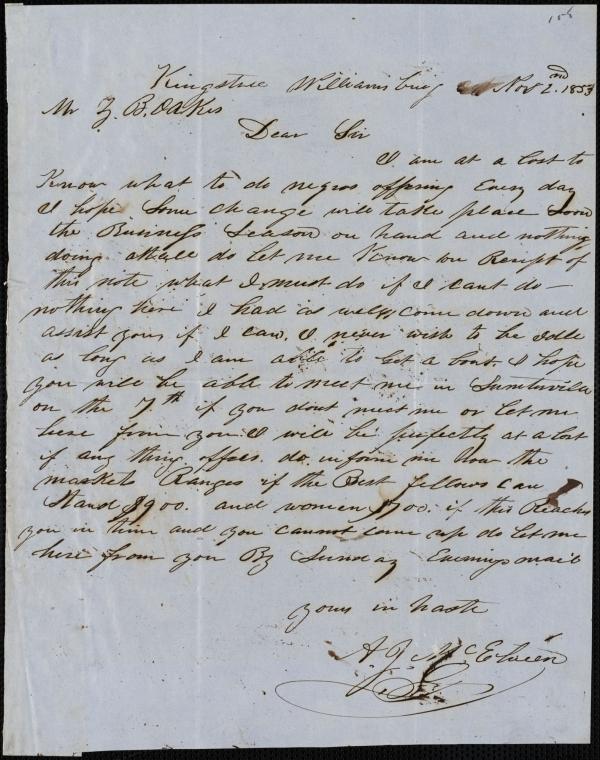 156
Kingstree Williamsburg Nov 2nd. 1853
Mr Z. B. Oakes
Dear Sir
I am at a lost to
Know what to do negros offering Every day
I hope Some change will take place Soon
the Business Season on hand and nothing
doing atall do let me Know on Receipt of
this note what I must do if I cant do -
nothing here I had as well come down and
assist you if I can. I never wish to be Idle
as long as I am able to Let a bout. I hope
you will be able to meet me in Sumterville
on the 7th if you dont meet me or let me
here from you I will be perfectly at a lost
if any thing offers. do inform me how the
markets Ranges if the Best fellows can
Stand $900. and women $700. if this Reachs
you in time and you cannot come up do let me
here from you By Sunday Evenings mail
yours in haste
A. J. McElveen